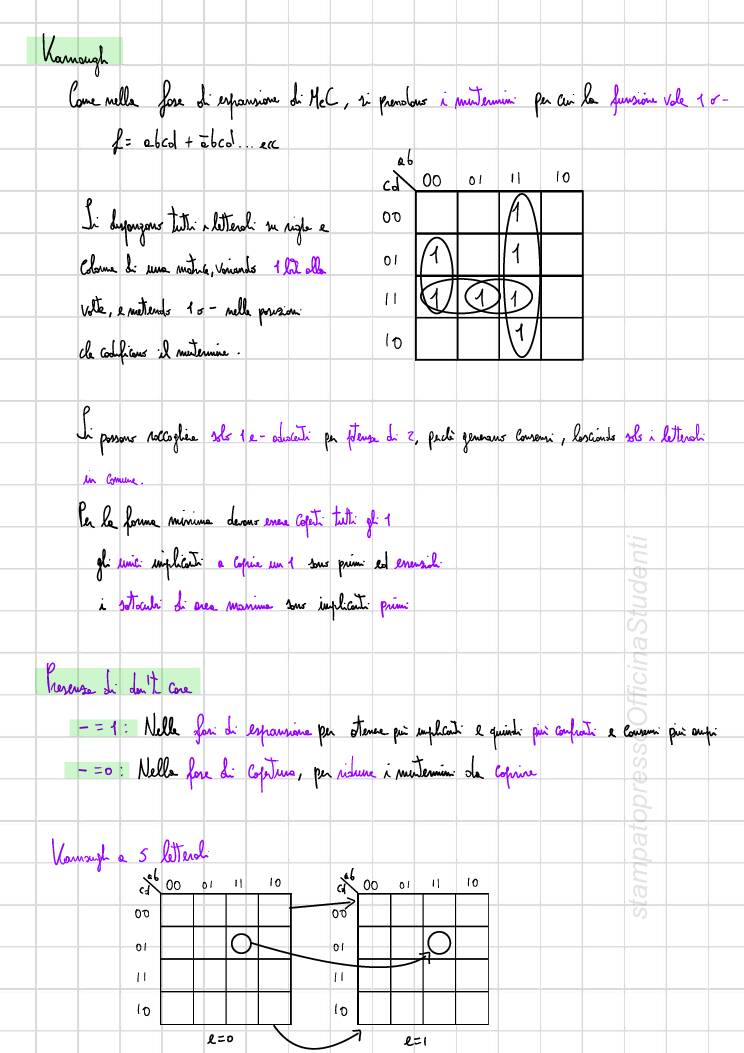 Karnaugh
Come nella fase di espansione di McC, si prendono i mintermini per cui la funzione vale 1 o -
f = abcd + a̅bcd ... ecc
ab
cd 00 01 11 10
00 1
Si dispongono tutti i letterali su righe e
01 1 1
colonne di una matrice, variando 1 bit alla
11 1 1 1
volta, e mettendo 1 o - nelle posizioni
10 1
che codificano il mintermine.
Si possono raccogliere solo 1 e - adiacenti per potenze di 2, perché generano consensi, lasciando solo i letterali
in comune.
Per la forma minima devono essere coperti tutti gli 1
gli unici implicanti a coprire un 1 sono primi ed essenziali
i sottocubi di area massima sono implicanti primi
Presenza di don't care
- = 1 : Nelle fasi di espansione per ottenere più implicanti e quindi più confronti e consensi più ampi
- = 0 : Nella fase di copertura, per ridurre i mintermini da coprire
Karnaugh a 5 letterali
ab ab
cd 00 01 11 10 cd 00 01 11 10
00 00
01 01
11 11
10 10
e=0 e=1
stampatopressoOfficinaStudenti